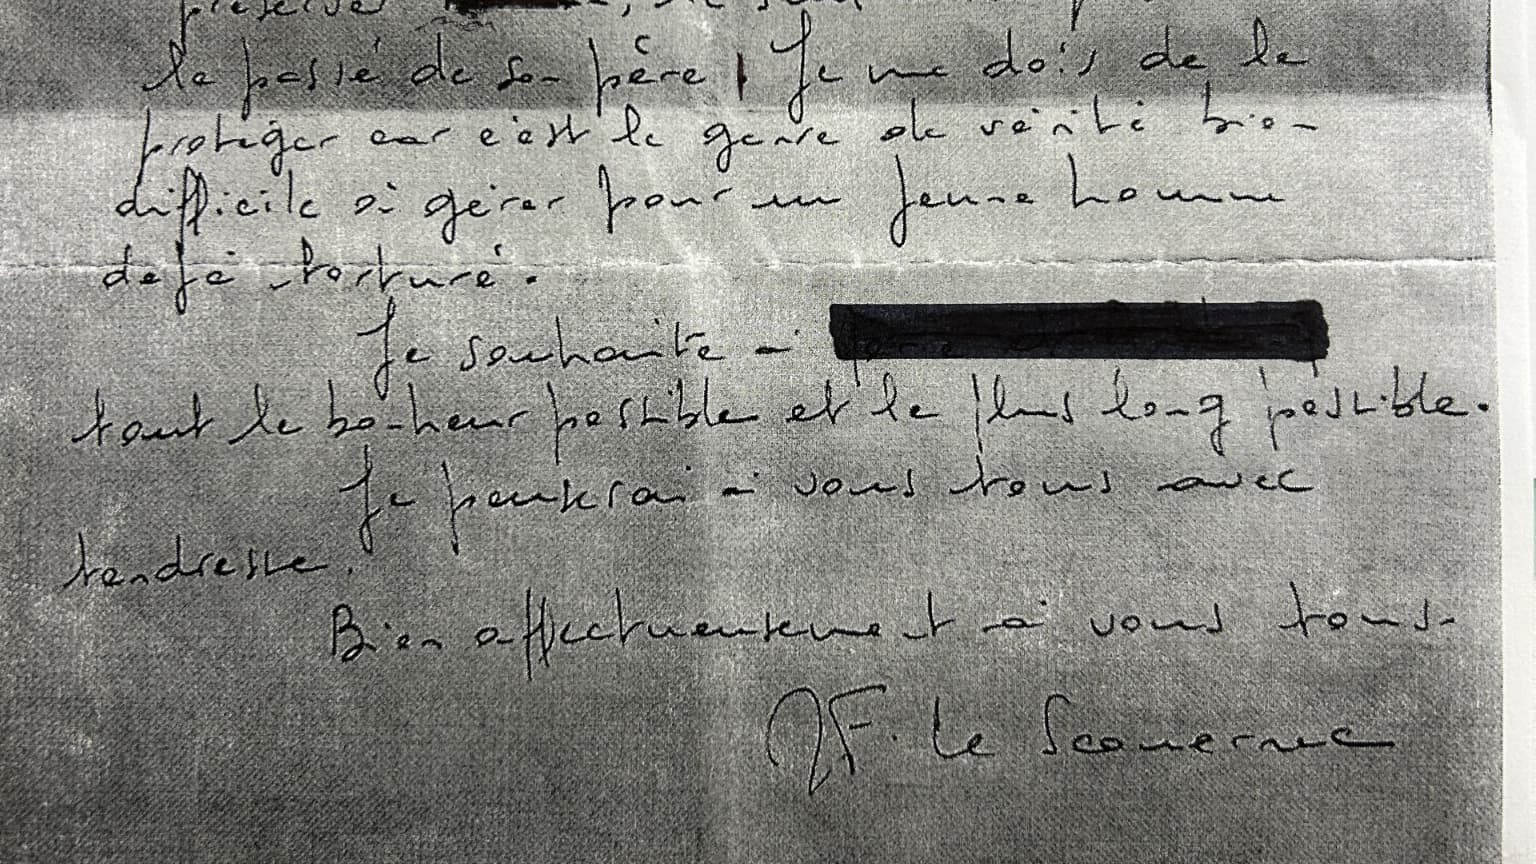 préserver
le passé de son père. Je me dois de le
protéger car c'est le genre de vérité bien
difficile à gérer pour un jeune homme
dejà torturé.
Je souhaite à
tout le bonheur possible et le plus long possible.
Je penserai à vous tous avec
tendresse.
Bien affectueusement à vous tous.
JF. Le Scouarnec